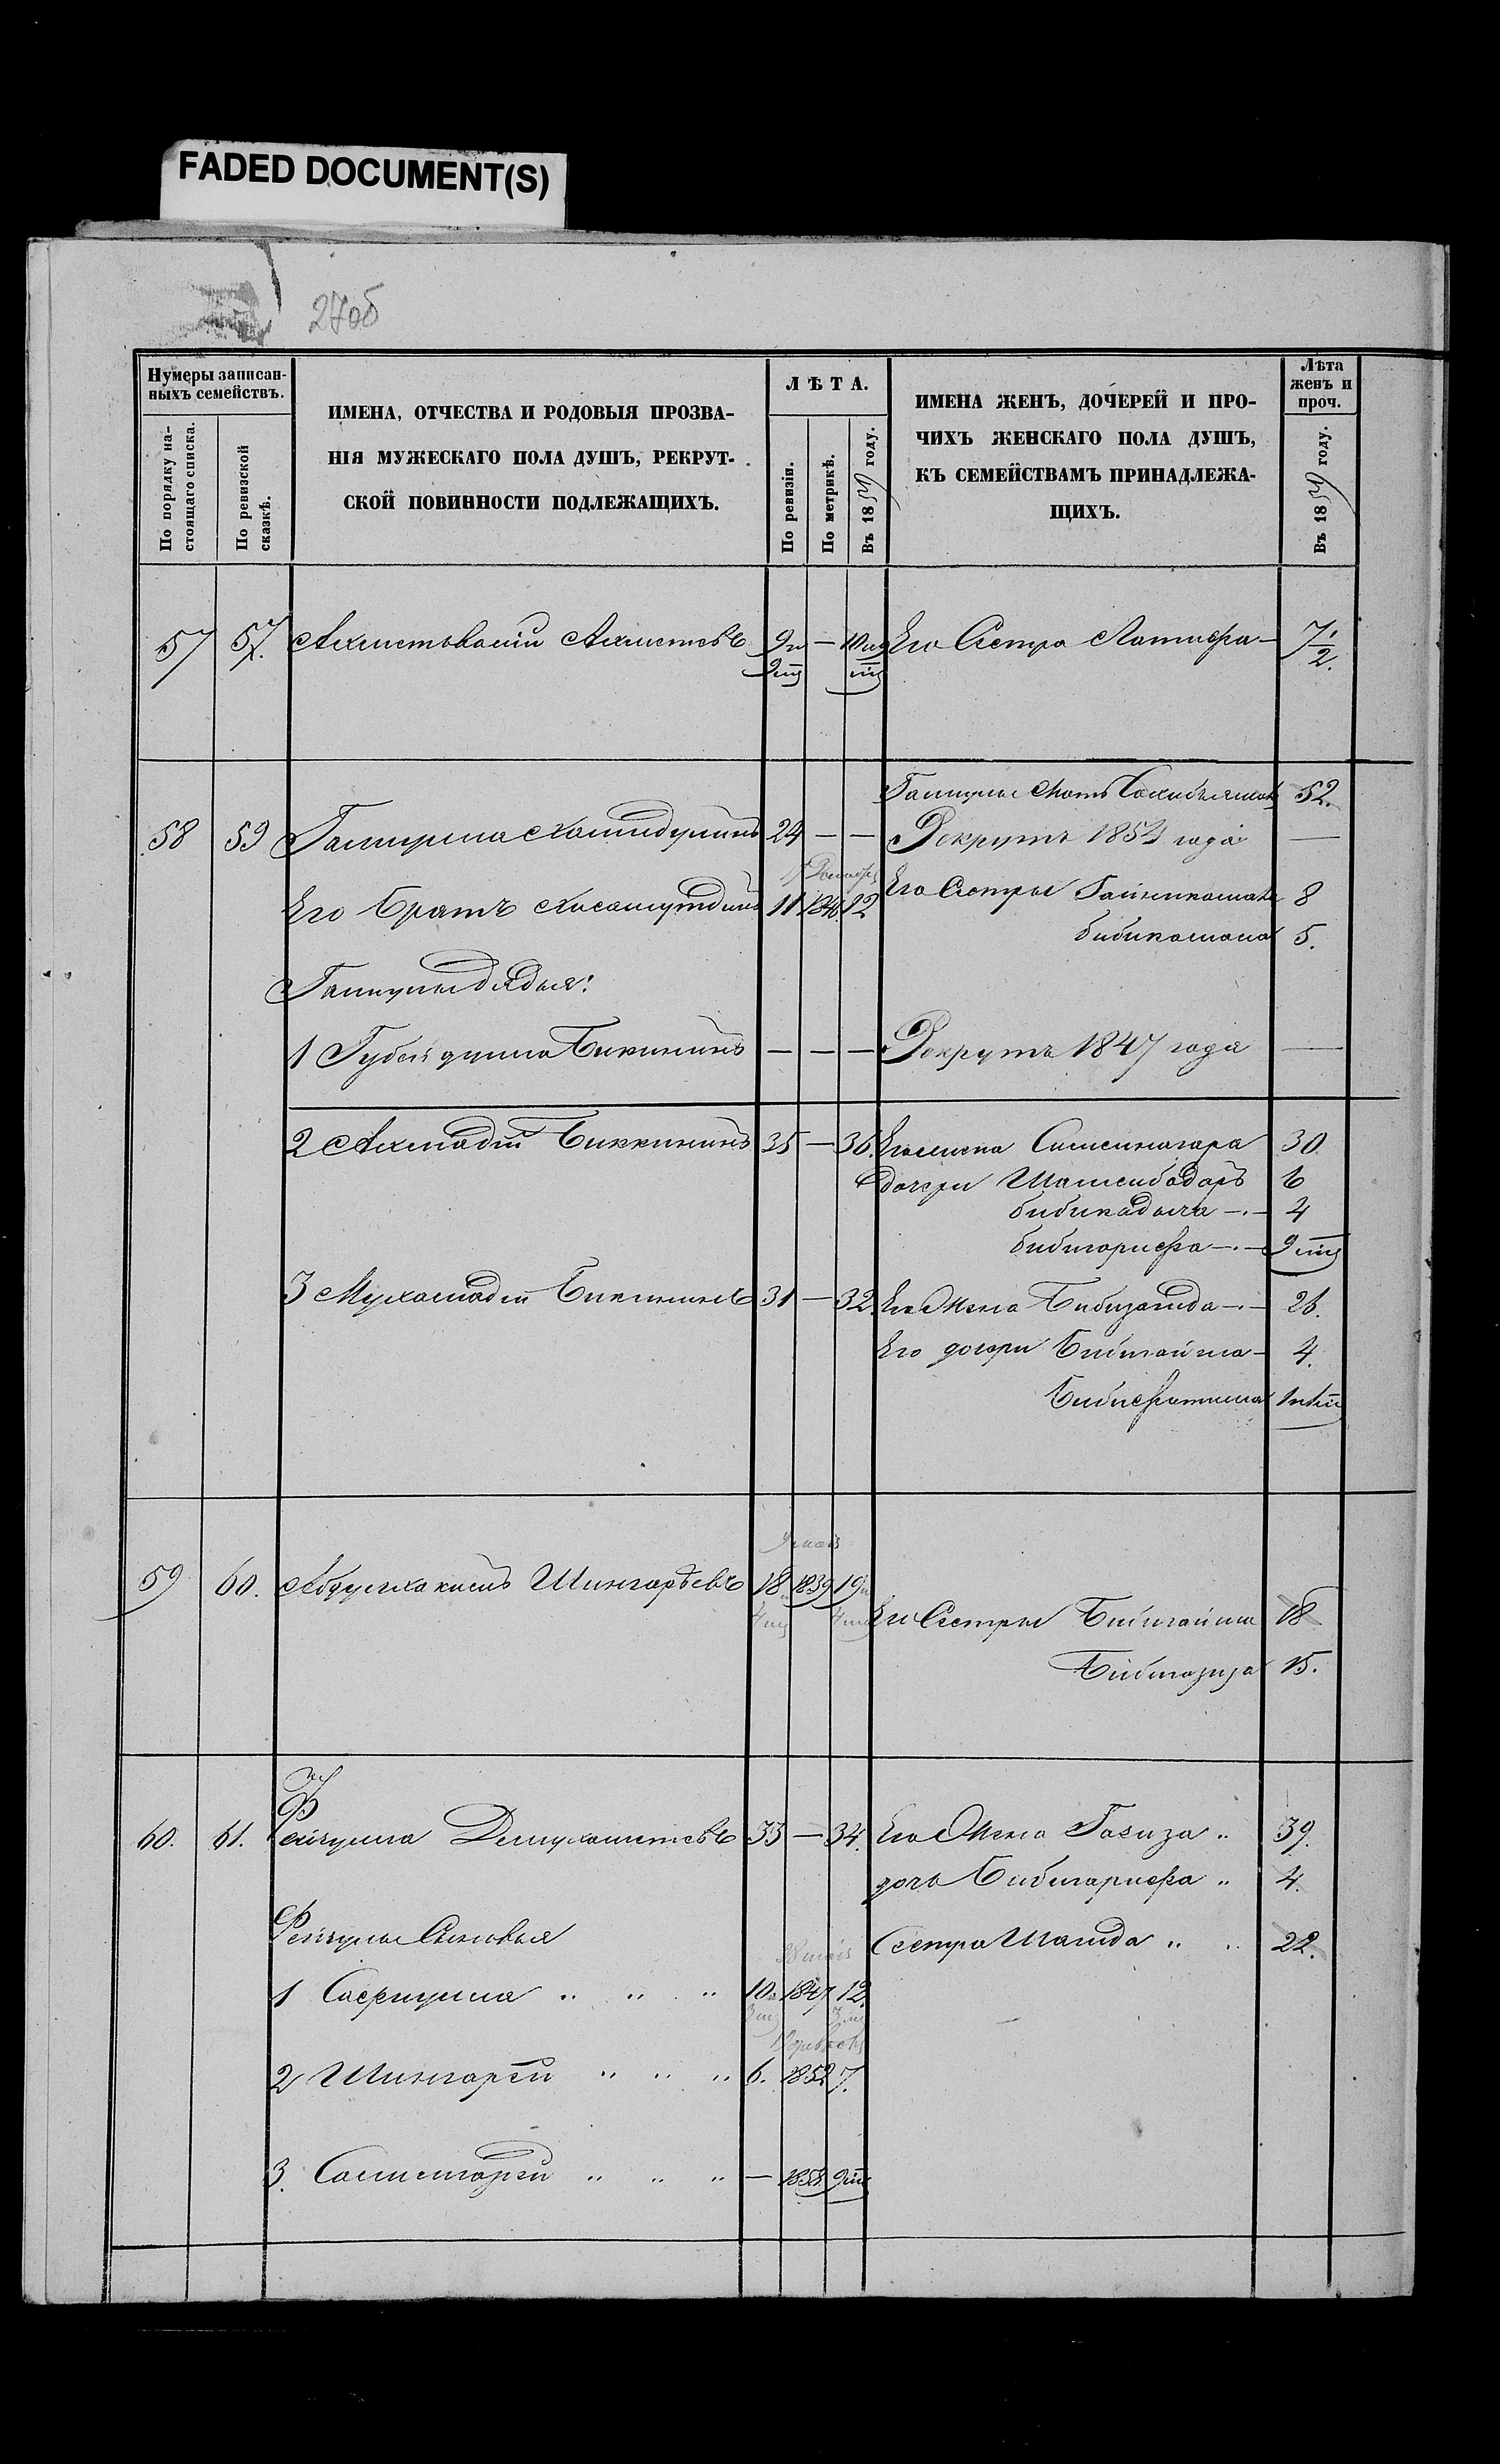 FADED DOCUMENT(S)
27об
Нумеры записан-
ныхъ семействъ.
По порядку на-
стоящаго списка.
По ревизской
сказкѣ.
ИМЕНА, ОТЧЕСТВА И РОДОВЫЯ ПРОЗВА-
НІЯ МУЖЕСКАГО ПОЛА ДУШЪ, РЕКРУТ-
СКОЙ ПОВИННОСТИ ПОДЛЕЖАЩИХЪ.
ЛѢТА.
По ревизіи.
По метрикѣ.
Въ 1859 году.
ИМЕНА ЖЕНЪ, ДОЧЕРЕЙ И ПРО-
ЧИХЪ ЖЕНСКАГО ПОЛА ДУШЪ,
КЪ СЕМЕЙСТВАМЪ ПРИНАДЛЕЖА-
ЩИХЪ.
Лѣта
женъ и
проч.
Въ 1859 году.
57 57. Ахметьвалій Ахметевъ — Его Сестра Латифа — 7 1/2.
Галиулы Мать 52.
58 59 Галиулла Хамидулинъ 24 — — Рекрутъ 1854 года —
Его Братъ Хисамутдинъ 11 1846 12 Его Сестры 8
бибикамала 5.
Галиулы дядья:
1 Губейдулла Бикининъ — — — Рекрутъ 1847 года —
2 Ахмадій Биккининъ 35 — 36. Его жена 30
дочери Шамсибадаръ 6
4
бибигарифа — 9 мц
3 Мухамадій Бикининъ 31 — 32. Его Жена Бибизагида — 26.
Его дочери Бибигайша — 4.
Бибифатима
9 мая
59 60. Абдулхакимъ Шингарѣевъ 18 1839 19
4 мц 4 мц Его Сестры Бибигайша 18
Бибигазиза 15.
60. 61. Фейзулла Делмухаметевъ 33 — 34. Его Жена Газиза " 39.
дочь Бибигарифа " 4.
Фейзулы Сыновья Сестра Шагида " " 22.
28 мая
1 Сафиулла " " " 10. 1847 12.
3 мц 3 мц
2 Шингарей " " " 6. 1852 7.
3. Салимгарей " " " — 1858 9 мц